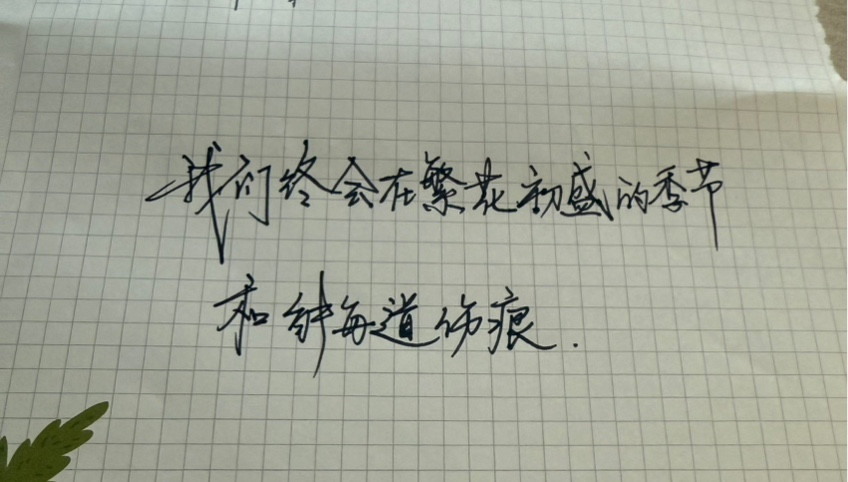 我们终会在繁花初盛的季节
和解每道伤痕.